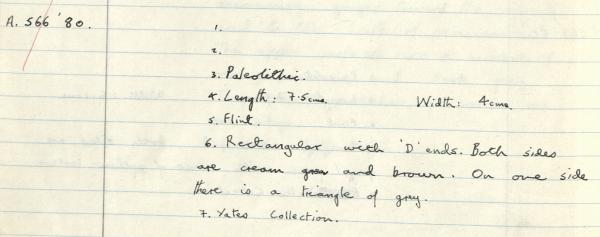 A. 566 '80.
1.
2.
3. Paleolithic.
4. Length: 7.5cms. Width: 4cms.
5. Flint.
6. Rectangular with 'D' ends. Both sides
are cream and brown. On one side
there is a triangle of grey.
7. Yates Collection.